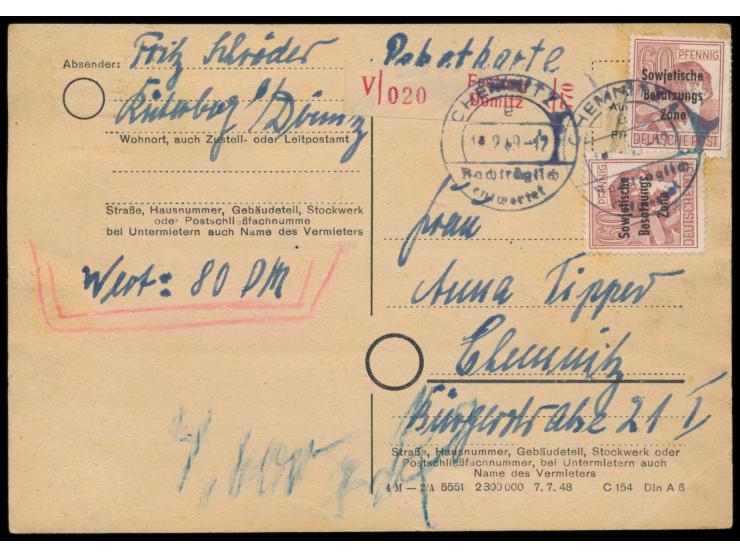 Absender: Fritz Schröder
Paketkarte
V 020
Dömitz
Wohnort, auch Zustell- oder Leitpostamt
Straße, Hausnummer, Gebäudeteil, Stockwerk
oder Postschließfachnumme
bei Untermietern auch Name des Vermieters
60 PFENNIG
Sowjetische
Besatzungs
Zone
DEUTSCHE POST
CHEMNITZ
e
Nachträglich
entwertet
CHEMNITZ
Nachträglich
PFENNIG
60
Sowjetische
Besatzungs
Zone
DEUTSCHE
Frau
Wert: 80 DM
Anna Tipper
Chemnitz
Bürgerstraße 21 I
Straße, Hausnummer, Gebäudeteil, Stockwerk oder
Postschließfachnummer, bei Untermietern auch
Name des Vermieters
4 M — 2/A 5551 2 300 000 7. 7. 48 C 154 Din A 6